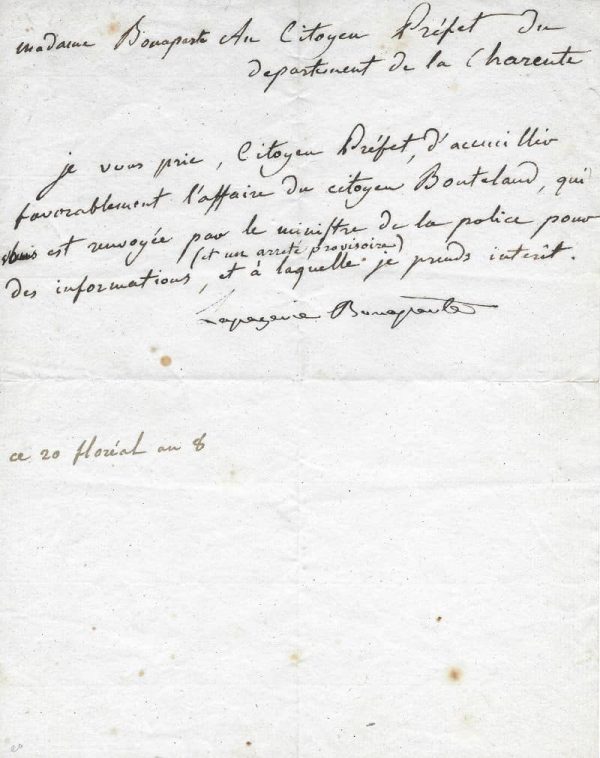 madame Bonaparte Au Citoyen Préfet du
departement de la Charente
je vous prie, Citoyen Préfet, d'accuillir
favorablement l'affaire du citoyen Bouteland, qui
vous est renvoyée par le ministre de la police pour
(et un arreté provisoire)
des informations, et à laquelle je prends interêt.
Lapagerie Bonaparte
ce 20 floréal an 8